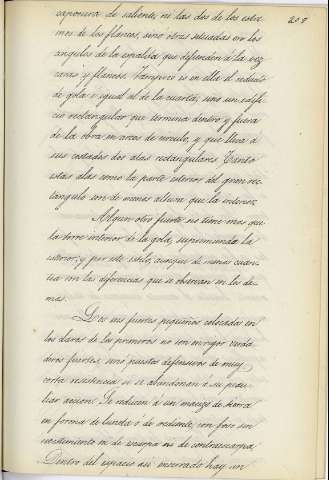 208
caponera de saliente, ni las dos de los extre
mos de los flancos, sino otras situadas en los
angulos de la espalda que defienden á la vez
caras y flancos. Tampoco es en ella el reducto
de gola igual al de la cuarta, sino un edifi
cio rectangular que termina dentro y fuera
de la obra en arcos de circulo, y que lleva á
sus costados dos alas rectangulares. Tanto
estas alas como la parte exterior del gran rec
tangulo son de menos altura que la interior.
Algun otro fuerte no tiene mas que
la torre interior de la gola, suprimiendo la
exterior; y por este estilo, aunque de menos cuan
tia son las diferencias que se observan en los de
mas.
Los seis fuertes pequeños colocados en
los claros de los primeros no son en rigor verda
deros fuertes, sino puestos defensivos de muy
corta resistencia si se abandonan á su pecu
liar accion. Se reducen á un macizo de tierra
en forma de luneta ó de rediente, con foso sin
revestimiento ni de escarpa ni de contraescarpa
Dentro del espacio asi encerrado hay un